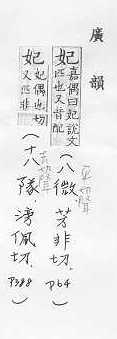 廣韻
妃 嘉偶曰妃說文匹也又音配 (八微. 芳非切. P64)
平聲
妃 妃偶也又匹非切 (十八隊. 滂佩切. P388)
去聲